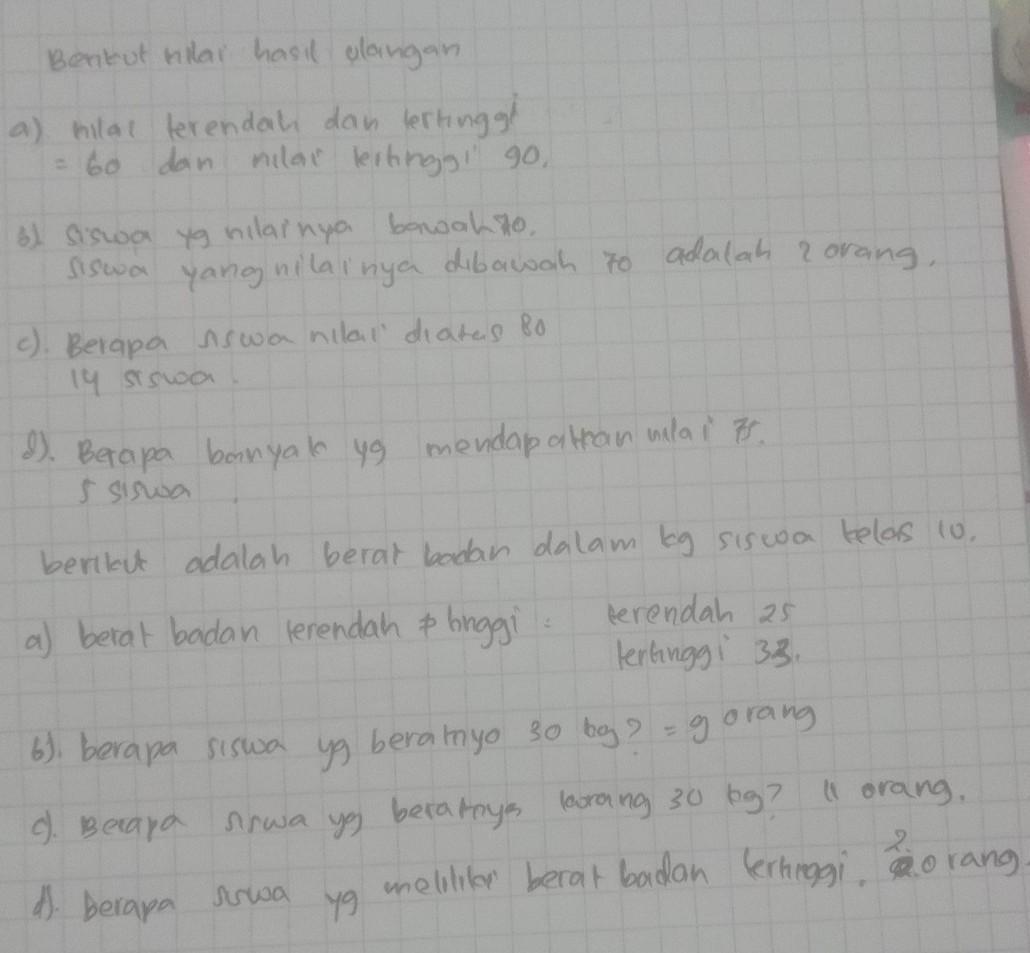 Berikut nilai hasil ulangan
a) nilai terendah dan tertinggi
= 60 dan nilai tertinggi 90.
b) siswa yg nilainya bawah 70.
siswa yang nilainya dibawah 70 adalah 2 orang.
c). Berapa siswa nilai diatas 80
14 siswa.
d). Berapa banyak yg mendapatkan nilai 75.
5 siswa
berikut adalah berat badan dalam kg siswa kelas 10.
a) berat badan terendah & tinggi : terendah 25
tertinggi 33.
b). berapa siswa yg beratnya 30 kg? = 9 orang
c). Berapa siswa yg beratnya kurang 30 kg? 11 orang.
d). berapa siswa yg meliliki berat badan tertinggi. 2 orang.